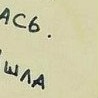 ась.
шла